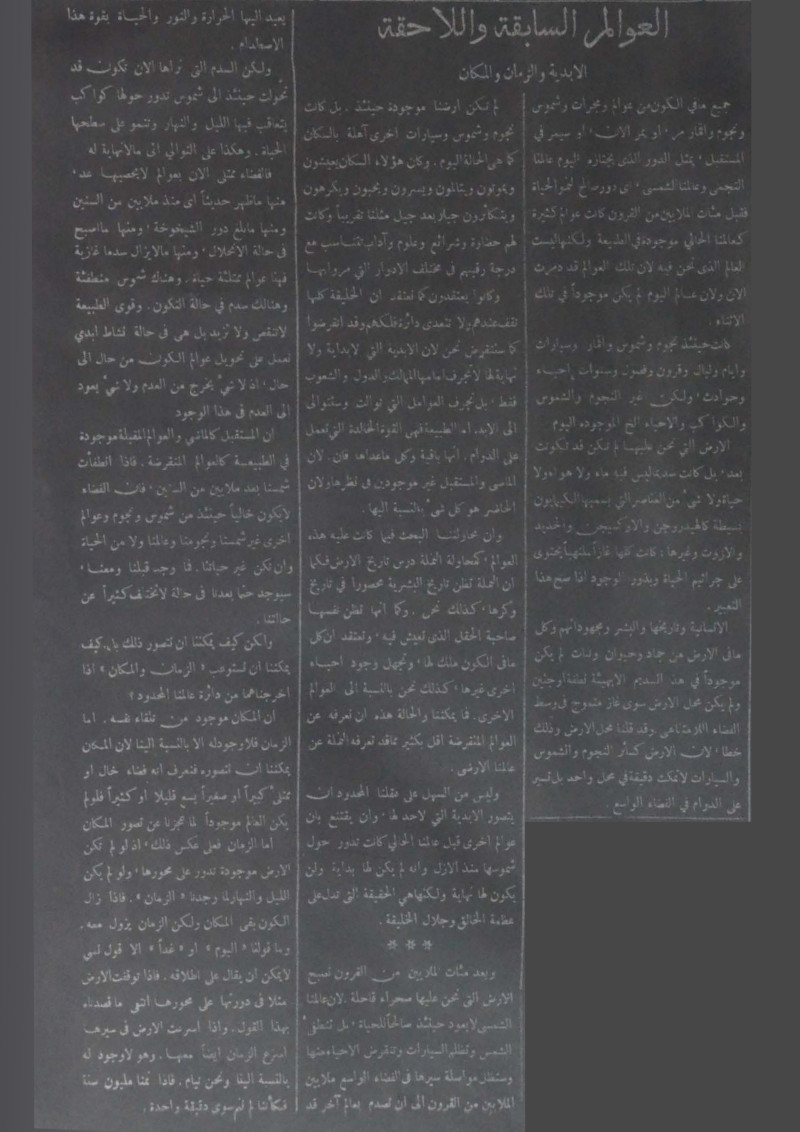 العوالم السابقة واللاحقة
الابدية والزمان والمكان
جميع ما في الكون من عوالم ومجرات وشموس
ونجوم واقمار مر، او يمر الآن، او سيمر في
المستقبل، بمثل الدور الذي يجتازه اليوم عالمنا
النجمي وعالمنا الشمسي، اي دور صالح لنمو الحياة
فقبل مئات الملايين من القرون كانت عوالم كثيرة
كعالمنا الحالي موجودة في الطبيعة ولكنها ليست
العالم الذي نحن فيه لان تلك العوالم قد دمرت
الان ولان عالم اليوم لم يكن موجوداً في تلك
الاثناء .
كانت حينئذ نجوم وشموس واقمار وسيارات
وايام وليال وقرون وفصول وسنوات واحياء
وحوادث، ولكن غير النجوم والشموس
والكواكب والاحياء الخ الموجوده اليوم
الارض التي نحن عليها لم تكن قد تكونت
بعد، بل كانت سديماً ليس فيه ماء ولا هواء ولا
حياة ولا شيء من العناصر التي يسميها الكيماويون
بسيطة كالهيدروجن والاوكسيجن والحديد
والازوت وغيرها، كانت كلها غازاً ملتهباً يحتوي
على جراثيم الحياة وبذور الوجود اذا صح هذا
التعبير .
الانسانية وتاريخها والبشر ومجهوداتهم وكل
ما في الارض من جماد وحيوان ونبات لم يكن
موجوداً في هذا السديم الا بهيئة نطفة او جنين
ولم يكن محل الارض سوى غاز مندمج في وسط
الفضاء اللامتناهي . وقد قلنا محل الارض وذلك
خطأ، لان الارض كسائر النجوم والشموس
والسيارات لا تمكث دقيقة في محل واحد بل تسير
على الدوام في الفضاء الواسع .
لم تكن ارضنا موجودة حينئذ . بل كانت
نجوم وشموس وسيارات اخرى آهلة بالسكان
كما هي الحالة اليوم . وكان هؤلاء السكان يعيشون
ويموتون ويتألمون ويسرون ويحبون ويكرهون
ويتكاثرون جيلا بعد جيل مثلنا تقريباً وكانت
لهم حضارة وشرائع وعلوم وآداب تتناسب مع
درجة رقيهم في مختلف الادوار التي مروا بها
وكانوا يعتقدون كما نعتقد ان الخليقة كلها
تقف عندهم ولا تتعدى دائرة فلكهم وقد انقرضوا
كما سننقرض نحن لان الابدية التي لا بداية ولا
نهاية لها لا تجرف امامها الممالك والدول والشعوب
فقط، بل تجرف العوامل التي توالت وستتوالى
الى الابد . اما الطبيعة فهي القوة الخالدة التي تعمل
على الدوام . انها باقية وكل ماعداها فان . لان
الماضي والمستقبل غير موجودين في نظرها ولان
الحاضر هو كل شيء بالنسبة اليها .
وان محاولتنا البحث فيما كانت عليه هذه
العوالم، كمحاولة النملة درس تاريخ الارض فكما
ان النملة تظن تاريخ البشرية محصورا في تاريخ
وكرها، كذلك نحن . وكما انها تظن نفسها
صاحبة الحقل الذي تعيش فيه، وتعتقد ان كل
ما في الكون ملك لها، وتجهل وجود احياء
اخرى غيرها، كذلك نحن بالنسبة الى العوالم
الاخرى . فما يمكننا والحالة هذه ان نعرفه عن
العوالم المنقرضة اقل بكثير مما قد تعرفه النملة عن
عالمنا الارضي .
وليس من السهل على عقلنا المحدود ان
يتصور الابدية التي لاحد لها، وأن يقتنع بأن
عوالم اخرى قبل عالمنا الحالي كانت تدور حول
شموسها منذ الازل وانه لم يكن لها بداية ولن
يكون لها نهاية ولكنها هي الحقيقة التي تدل على
عظمة الخالق وجلال الخليقة .
* * *
وبعد مئات الملايين من القرون تصبح
الارض التي نحن عليها صحراء قاحلة لان عالمنا
الشمسي لا يعود حينئذ صالحاً للحياة، بل تنطفىء
الشمس وتظلم السيارات وتنقرض الاحياء منها
وستظل مواصلة سيرها في الفضاء الواسع ملايين
الملايين من القرون الى ان تصدم بعالم آخر قد
يعيد اليها الحرارة والنور والحياة بقوة هذا
الاصطدام .
ولكن السدم التي نراها الان تكون قد
تحولت حينئذ الى شموس تدور حولها كواكب
يتعاقب فيها الليل والنهار وتنمو على سطحها
الحياة . وهكذا على التوالي الى مالانهاية له
فالفضاء ممتلئ الآن بعوالم لا يحصيها عد،
منها ماظهر حديثاً اي منذ ملايين من السنين
ومنها مابلغ دور الشيخوخة، ومنها مااصبح
في حالة الانحلال، ومنها مالايزال سدما غازية
فهنا عوالم ممتلئة حياة . وهناك شموس منطفئة
وهنالك سدم في حالة التكون . وقوى الطبيعة
لاتنقص ولا تزيد بل هي في حالة نشاط ابدي
تعمل على تحويل عوالم الكون من حال الى
حال، اذ لا شيء يخرج من العدم ولا شيء يعود
الى العدم في هذا الوجود
ان المستقبل كالماضي والعوالم المقبلة موجودة
في الطبيعة كالعوالم المنقرضة . فاذا انطفأت
شمسنا بعد ملايين من السنين، فان الفضاء
لايكون خالياً حينئذ من شموس ونجوم وعوالم
اخرى غير شمسنا ونجومنا وعالمنا ولا من الحياة
وان تكن غير حياتنا . فما وجد قبلنا ومعنا،
سيوجد حتما بعدنا في حالة لا تختلف كثيراً عن
حالتنا .
ولكن كيف يمكننا ان نتصور ذلك بل كيف
يمكننا ان نستوعب « الزمان والمكان » اذا
اخرجناهما من دائرة عالمنا المحدود ؟
ان المكان موجود من تلقاء نفسه . اما
الزمان فلا وجود له الا بالنسبة الينا لان المكان
يمكننا ان نتصوره فنعرف انه فضاء خال او
ممتلئ كبيراً او صغيراً يسع قليلا او كثيراً فلو لم
يكن العالم موجوداً لما عجزنا عن تصور المكان
أما الزمان فعلى عكس ذلك، اذ لو لم تكن
الارض موجودة تدور على محورها، ولو لم يكن
الليل والنهار لما وجدنا « الزمان » . فاذا زال
الكون بقي المكان ولكن الزمان يزول معه .
وما قولنا « اليوم » او « غداً » الا قول نسبي
لايمكن ان يقال على اطلاقه . فاذا توقفت الارض
مثلا في دورتها على محورها انتفى ما قصدناه
بهذا القول . واذا اسرعت الارض في سيرها
اسرع الزمان ايضاً معها . وهو لاوجود له
بالنسبة الينا ونحن نيام . فاذا نمنا مليون سنة
فكأننا لم ننم سوى دقيقة واحدة .